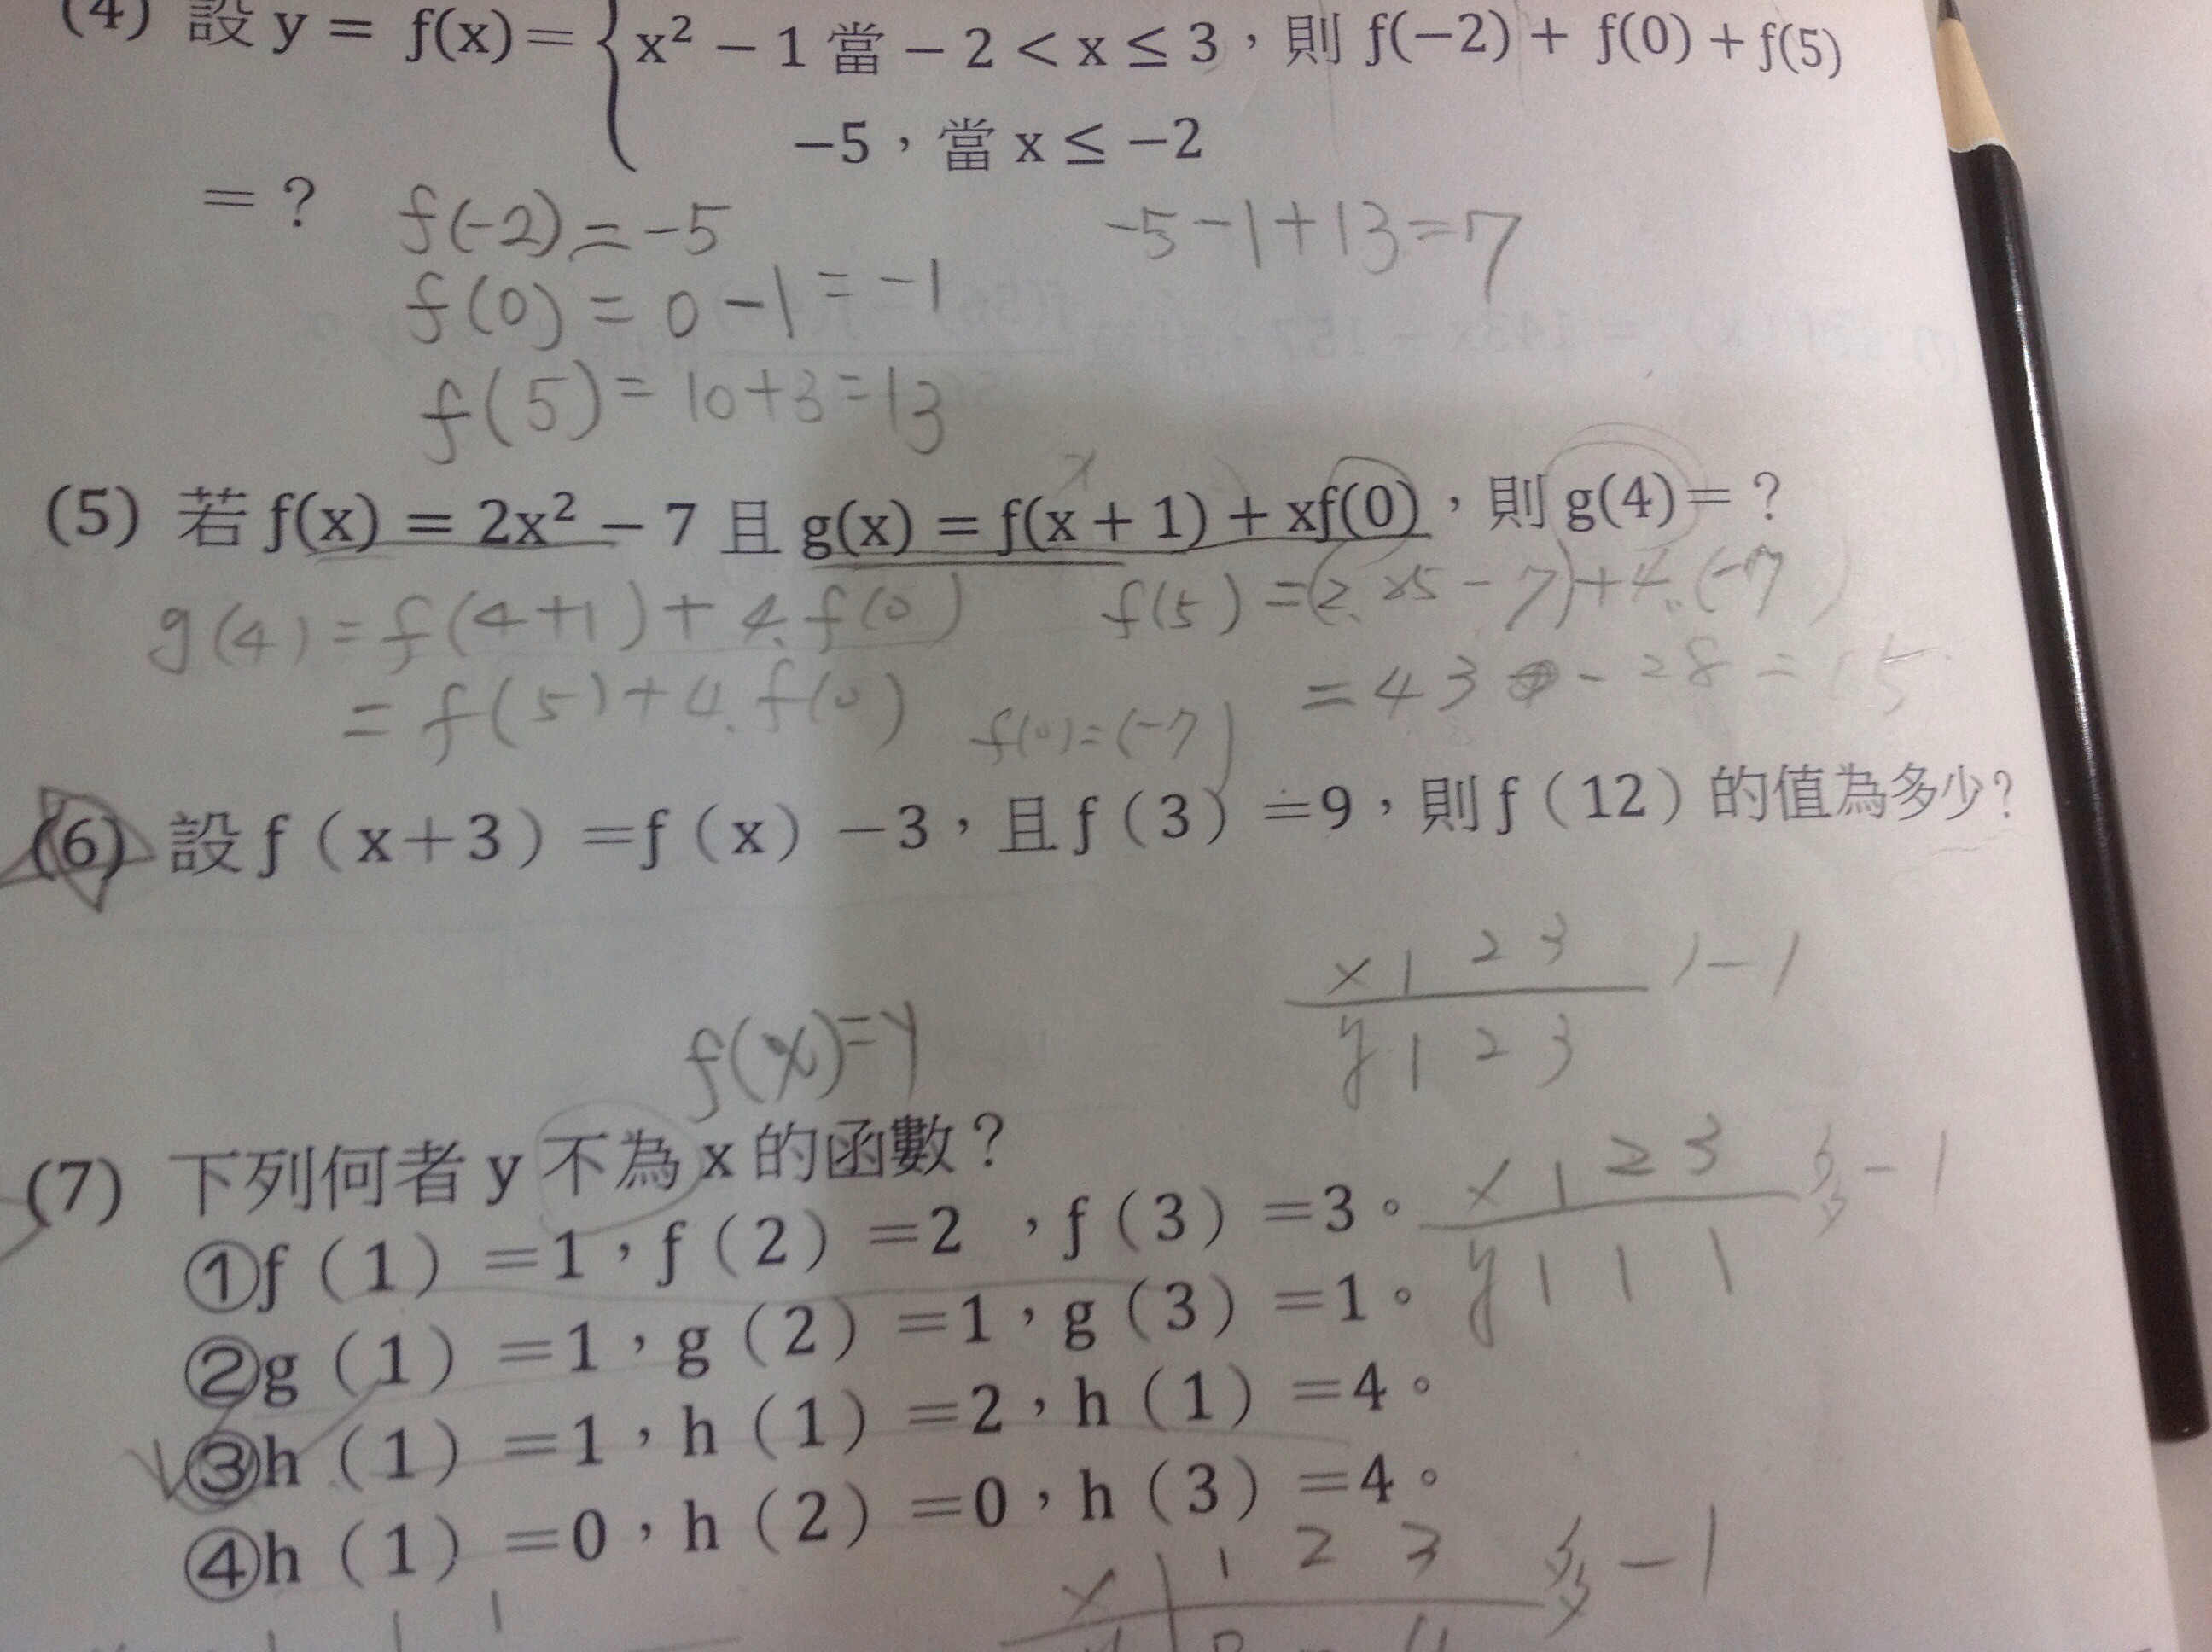 (4) 設 y = f(x) = { x² − 1 當 − 2 < x ≤ 3，則 f(−2) + f(0) + f(5)
−5，當 x ≤ −2
= ?
f(-2) = -5
-5-1+13=7
f(0) = 0-1 = -1
f(5) = 10+3=13
x
(5) 若 f(x) = 2x² − 7 且 g(x) = f(x + 1) + xf(0)，則 g(4) = ?
g(4) = f(4+1) + 4.f(0)
f(5) = (2. x5 - 7) + 4.(-7)
= f(5)+4.f(0)
f(0)=(-7)
= 43 - 28 = 15
(6) 設 f（x+3）=f（x）−3，且 f（3）=9，則 f（12）的值為多少?
x 1 2 3
y 1 2 3
1-1
f(x)=y
(7) 下列何者 y 不為 x 的函數?
①f（1）=1，f（2）=2 ，f（3）=3。
x 1 2 3
y 1 1 1
-1
②g（1）=1，g（2）=1，g（3）=1。
③h（1）=1，h（1）=2，h（1）=4。
④h（1）=0，h（2）=0，h（3）=4。
x 1 2 3
-1
1 1